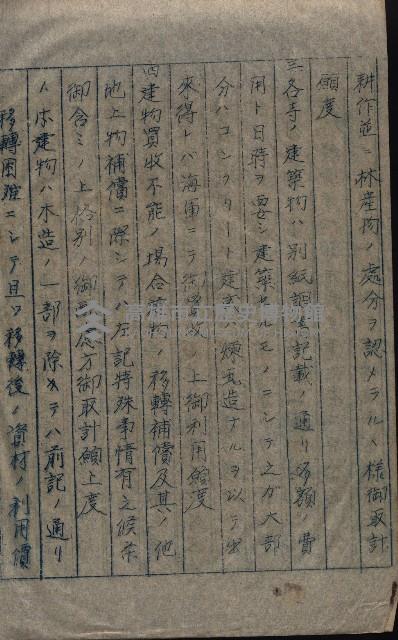 耕作並ニ林産物ノ處分ヲ認メラルヽ樣御取計
願度
三各寺ノ建築物ハ別紙調書記載ノ通リ多額ノ費
用ト日時ヲ要シ建築セルモノニシテ之ガ大部
分ハコンクリート建又ハ煉瓦造ナルヲ以テ出
來得レバ海軍ニテ御買收ノ上御利用願度
四建物買收不能ノ場合建物ノ移轉補償及其ノ他
地上物補償ニ際シテハ左記特殊事情有之候条
御含ミノ上格別ノ御
方御取計願上度
イ本建物ハ木造ノ一部ヲ除キテハ前記ノ通リ
移轉困難ニシテ且ツ移轉後ノ資材ノ利用價
高雄市立歷史博物館